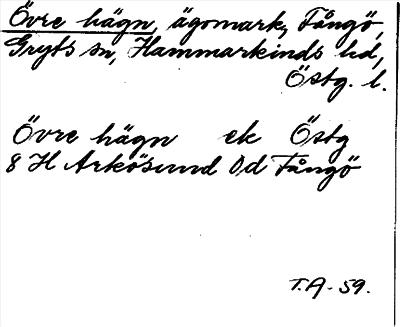 Övre hägn, ägomark, Fångö,
Gryts sn, Hammarkinds hd,
Östg. l.
Övre hägn ek Östg
8 H Arkösund Od Fångö
T.A. 59.